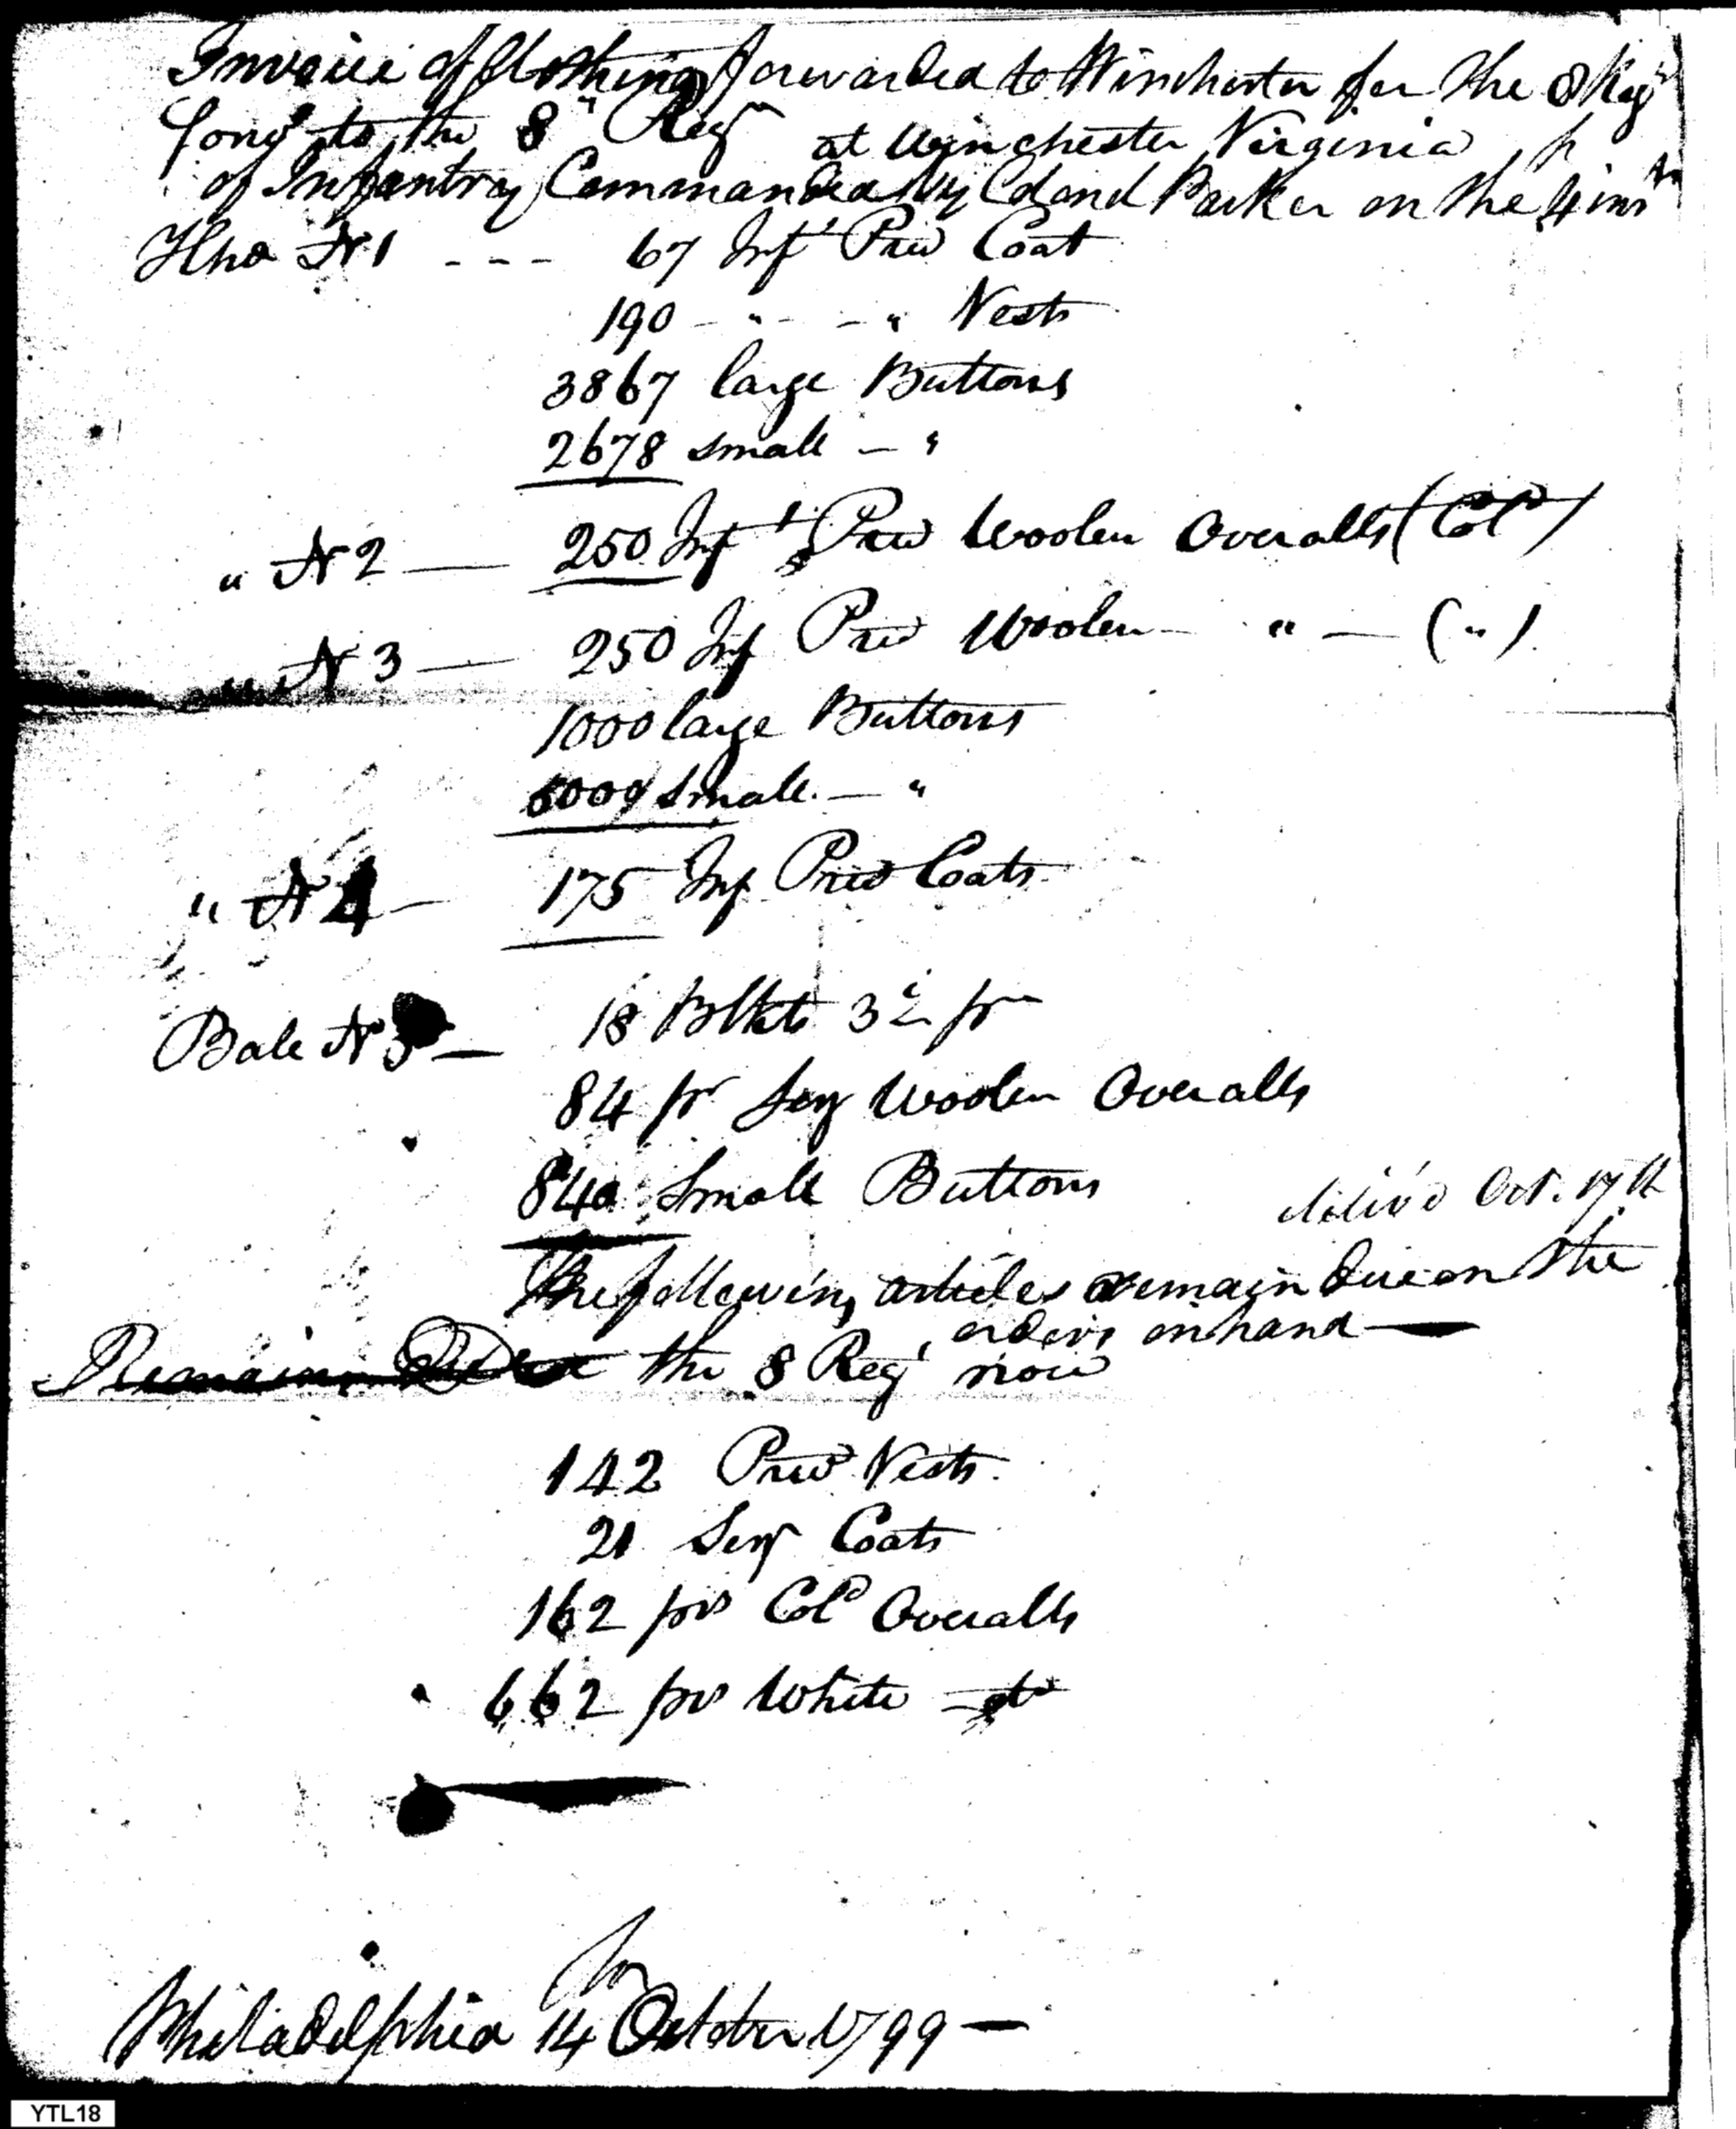 Invoice of Clothing forwarded to Winchester for the 8 Regt
to the 8th Regt at Winchester Virginia
of Infantry Commanded by Col and Parker on the 4 inst
Hhd No 1 - - - 67 Inft Priv Coat
190 - " - - " Vests
3867 large Buttons
2678 small - "
" No 2 — 250 Inft Priv Woolen Overalls (Cold)
" No 3 — 250 Inf Priv Woolen - " — (")
1000 large Buttons
small. — "
" No 4 — 175 Inf Priv Coats
Bale No 5 — 18 Blkts 3 pt
84 pr Serj Woolen Overalls
840 Small Buttons
deliv'd Oct. 17th
The following articles remain due on the
orders on hand —
Remains the 8 Regt now
142 Priv Vests
21 Serj Coats
162 prs Cold Overalls
662 prs White do
Philadelphia 14 October 1799 —
YTL18